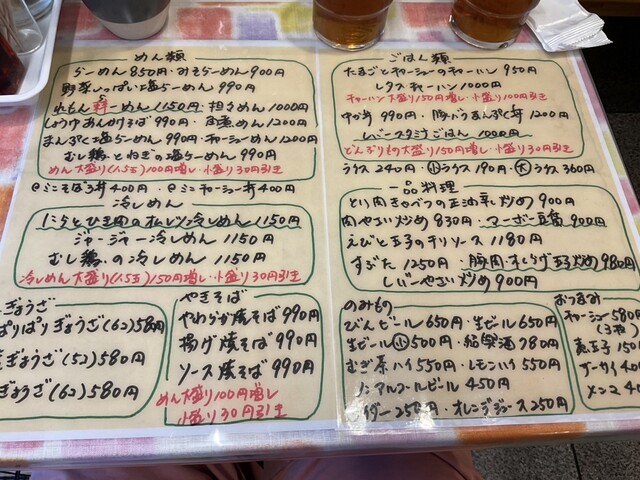 めん類
らーめん 850円・みそらーめん 900円
野菜いっぱい塩らーめん 990円
れもん らーめん 1150円・担々めん 1000円
しょうゆあんかけそば 990円・ めん 1200円
まんぷく塩らーめん 990円・チャーシューめん 1200円
むし鶏とねぎの塩らーめん 990円
めん大盛り(1.5玉)100円増し・小盛り30円引き
@ミニそぼろ丼 400円・@ミニチャーシュー丼 400円
冷しめん
にらとひき肉のオムレツ冷しめん 1150円
ジャージャー冷しめん 1150円
むし鶏の冷しめん 1150円
冷しめん大盛り(1.5玉)150円増し・小盛り30円引き
ぎょうざ
ぱりぱりぎょうざ(6コ)580円
ぎょうざ(5コ)580円
ぎょうざ(6コ)580円
やきそば
やわらか焼そば 990円
揚げ焼そば 990円
ソース焼そば 990円
めん大盛り100円増し
小盛り30円引き
ごはん類
たまごとチャーシューのチャーハン 950円
レタスチャーハン 1000円
チャーハン大盛り150円増し・小盛り100円引き
中か丼 990円・豚バラまんぷく丼 1200円
レバースタミナごはん 1000円
どんぶりもの大盛り150円増し・小盛り100円引き
ライス 240円・小ライス 190円・大ライス 360円
一品料理
とり肉ときゃべつの正油辛し炒め 900円
肉やさい炒め 830円・マーボー豆腐 900円
えびと玉子のチリソース 1180円
すぶた 1250円・豚肉・木くらげ玉子炒め 980円
レバーやさい炒め 900円
のみもの
びんビール 650円・生ビール 650円
生ビール小 500円・紹興酒 780円
むぎ茶ハイ 550円・レモンハイ 550円
ノンアルコールビール 450円
イダー 250円・オレンジジュース 250円
おつまみ
チャーシュー 580円
(3枚)
煮玉子 150
ザーサイ 400
メンマ 4